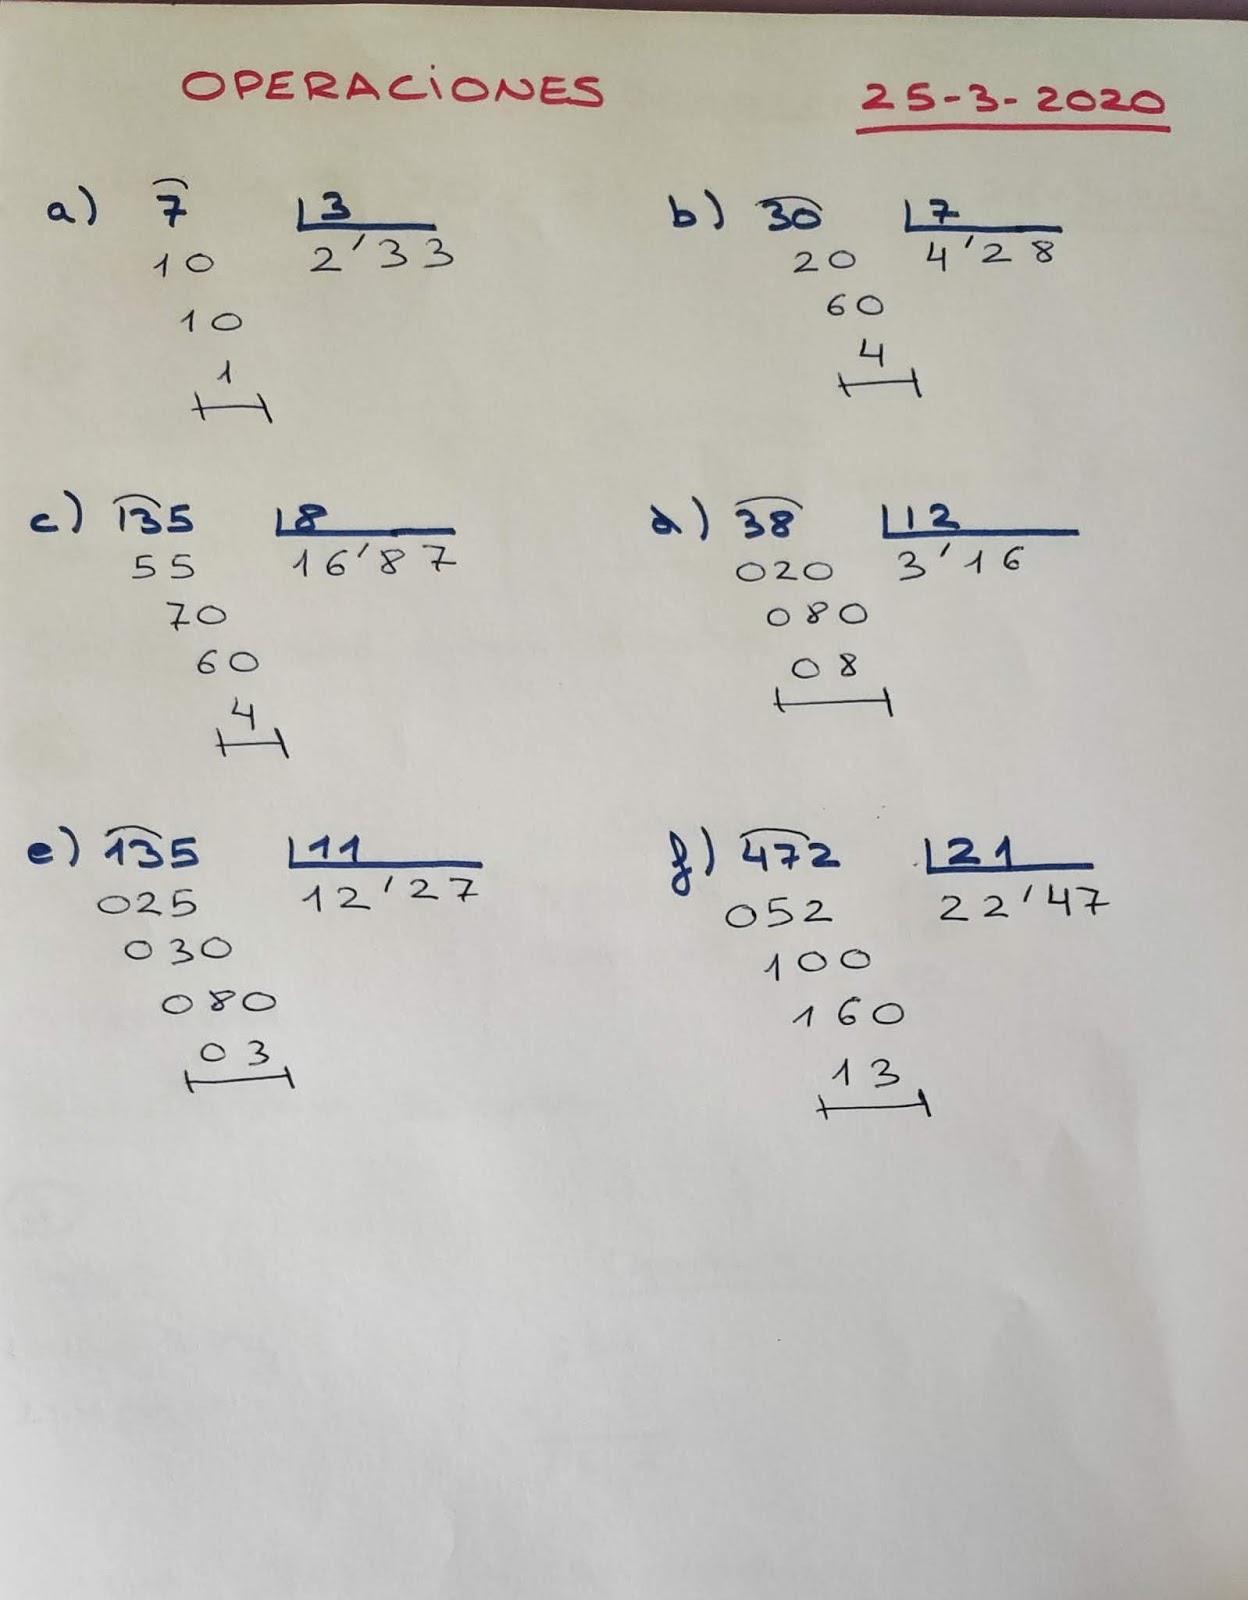 OPERACIONES 25-3-2020
a) 7 3
10 2'33
10
1
b) 30 7
20 4'28
60
4
c) 135 8
55 16'87
70
60
4
d) 38 12
020 3'16
080
08
e) 135 11
025 12'27
030
080
03
f) 472 21
052 22'47
100
160
13